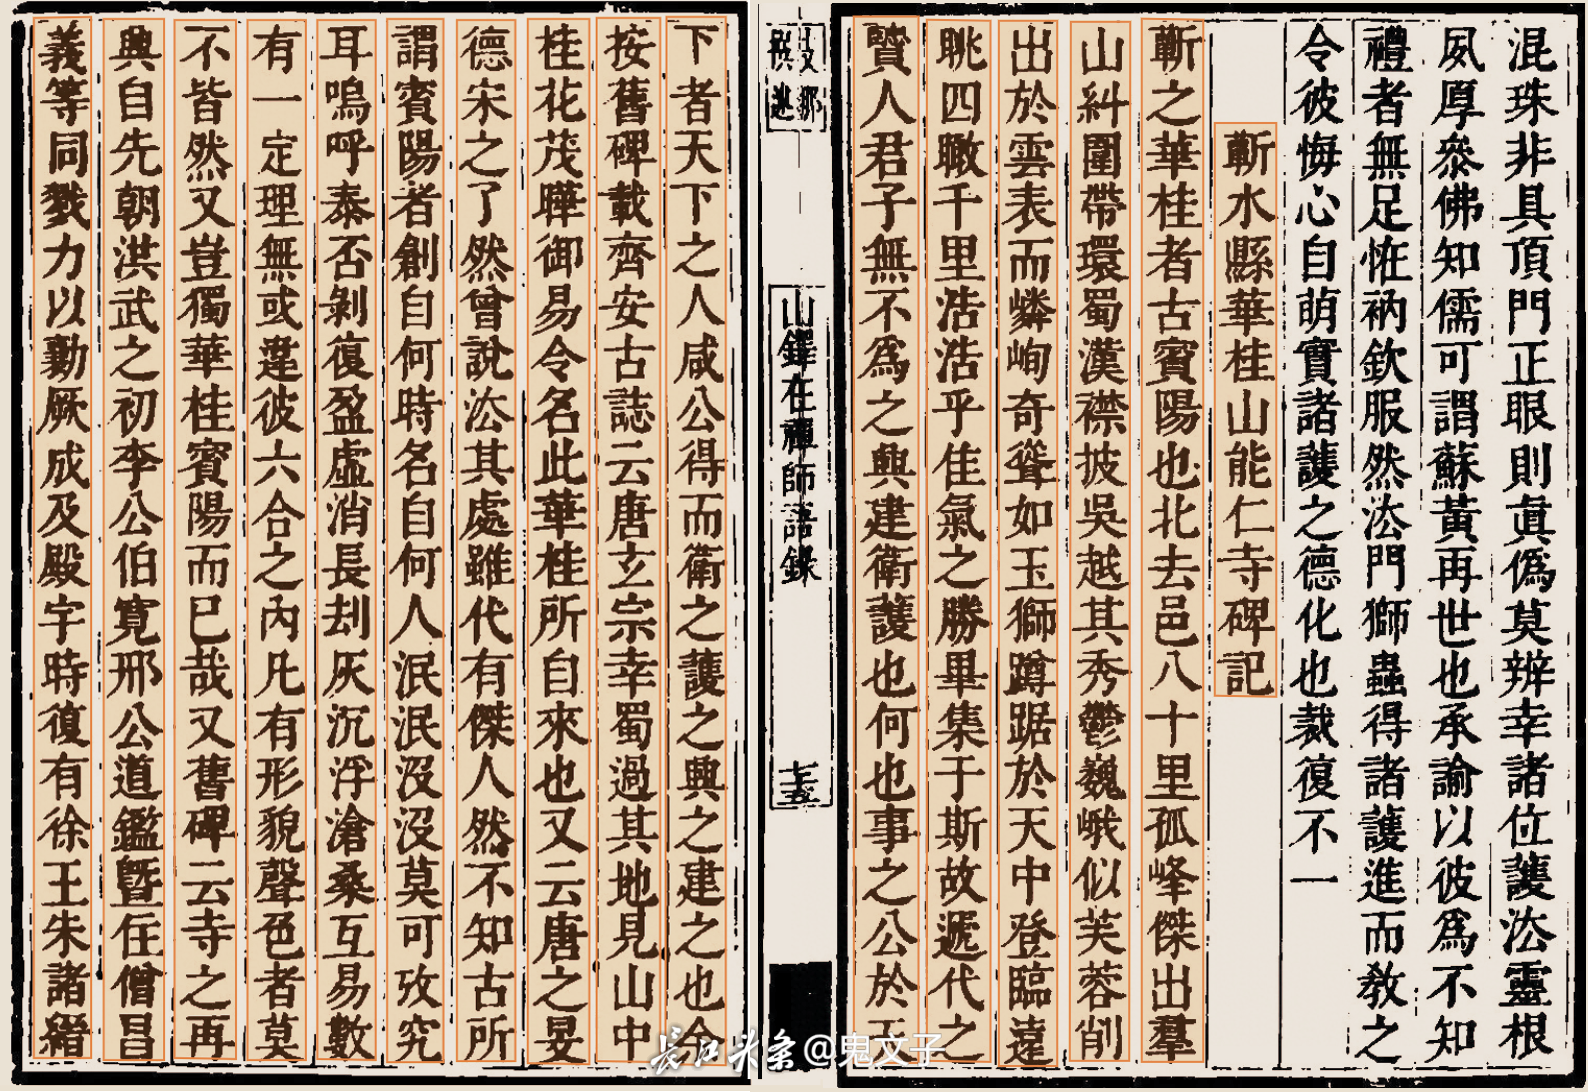 混珠非具頂門正眼則眞僞莫辨幸諸位護法靈根
夙厚叅佛知儒可謂蘇黃再世也承諭以彼爲不知
禮者無足怪衲欽服然法門獅蟲得諸護進而教之
令彼悔心自萌實諸護之德化也裁復不一
蘄水縣華桂山能仁寺碑記
蘄之華桂者古賓陽也北去邑八十里孤峰傑出羣
山糾圍帶環蜀漢襟披吳越其秀鬱巍峨似芙蓉削
出於雲表而嶙峋奇聳如玉獅蹲踞於天中登臨遠
眺四瞰千里浩浩乎佳氣之勝畢集于斯故遞代之
賢人君子無不爲之興建衛護也何也事之公於天
下者天下之人咸公得而衛之護之興之建之也今
按舊碑載齊安古誌云唐玄宗幸蜀過其地見山中
桂花茂曄御易令名此華桂所自來也又云唐之旻
德宋之了然曾說法其處雖代有傑人然不知古所
謂賓陽者創自何時名自何人泯泯沒沒莫可攷究
耳嗚呼泰否剝復盈虛消長刦灰沉浮滄桑互易數
有一定理無或違彼六合之內凡有形貌聲色者莫
不皆然又豈獨華桂賓陽而已哉又舊碑云寺之再
興自先朝洪武之初李公伯寬邢公道鑑暨住僧昌
義等同戮力以勷厥成及殿宇時復有徐王朱諸縉
支那
撰述
山鐸在禪師語錄
十五
长江头条@鬼文子